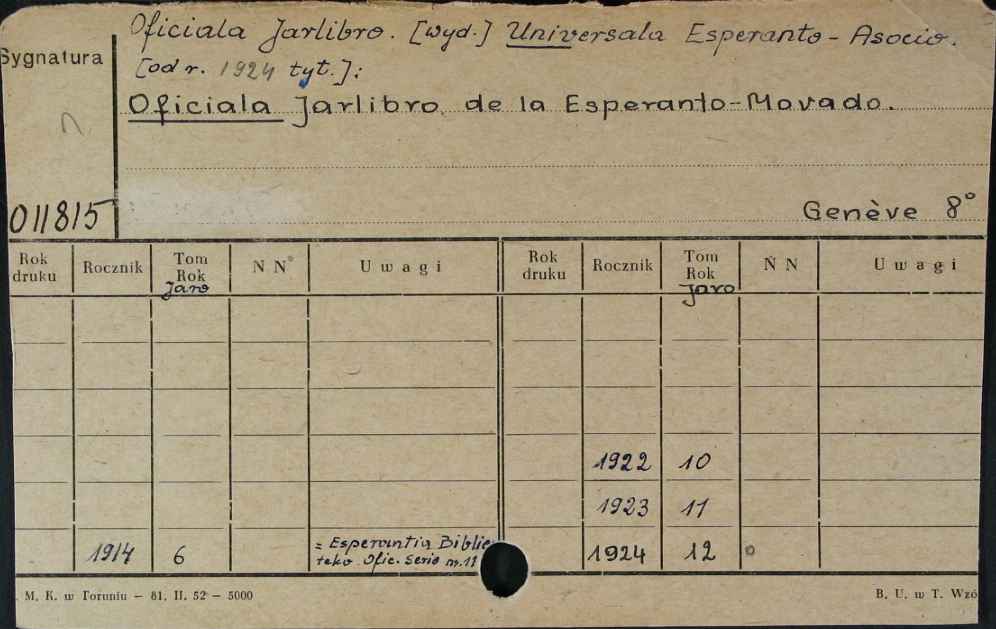 Oficiala Jarlibro. [wyd.] Universala Esperanto-Asocio.
[od r. 1924 tyt.]:
Sygnatura
Oficiala Jarlibro de la Esperanto-Movado.
011815
Genève 8°
Rok druku Rocznik Tom Rok Jaro N N° U w a g i Rok druku Rocznik Tom Rok Jaro N N U w a g i
1922 10
1923 11
1914 6 = Esperantia Biblio-
teko Ofic. Serio nr. 11
1924 12 o
M. K. w Toruniu – 81. II. 52 – 5000
B. U. w T. Wzó